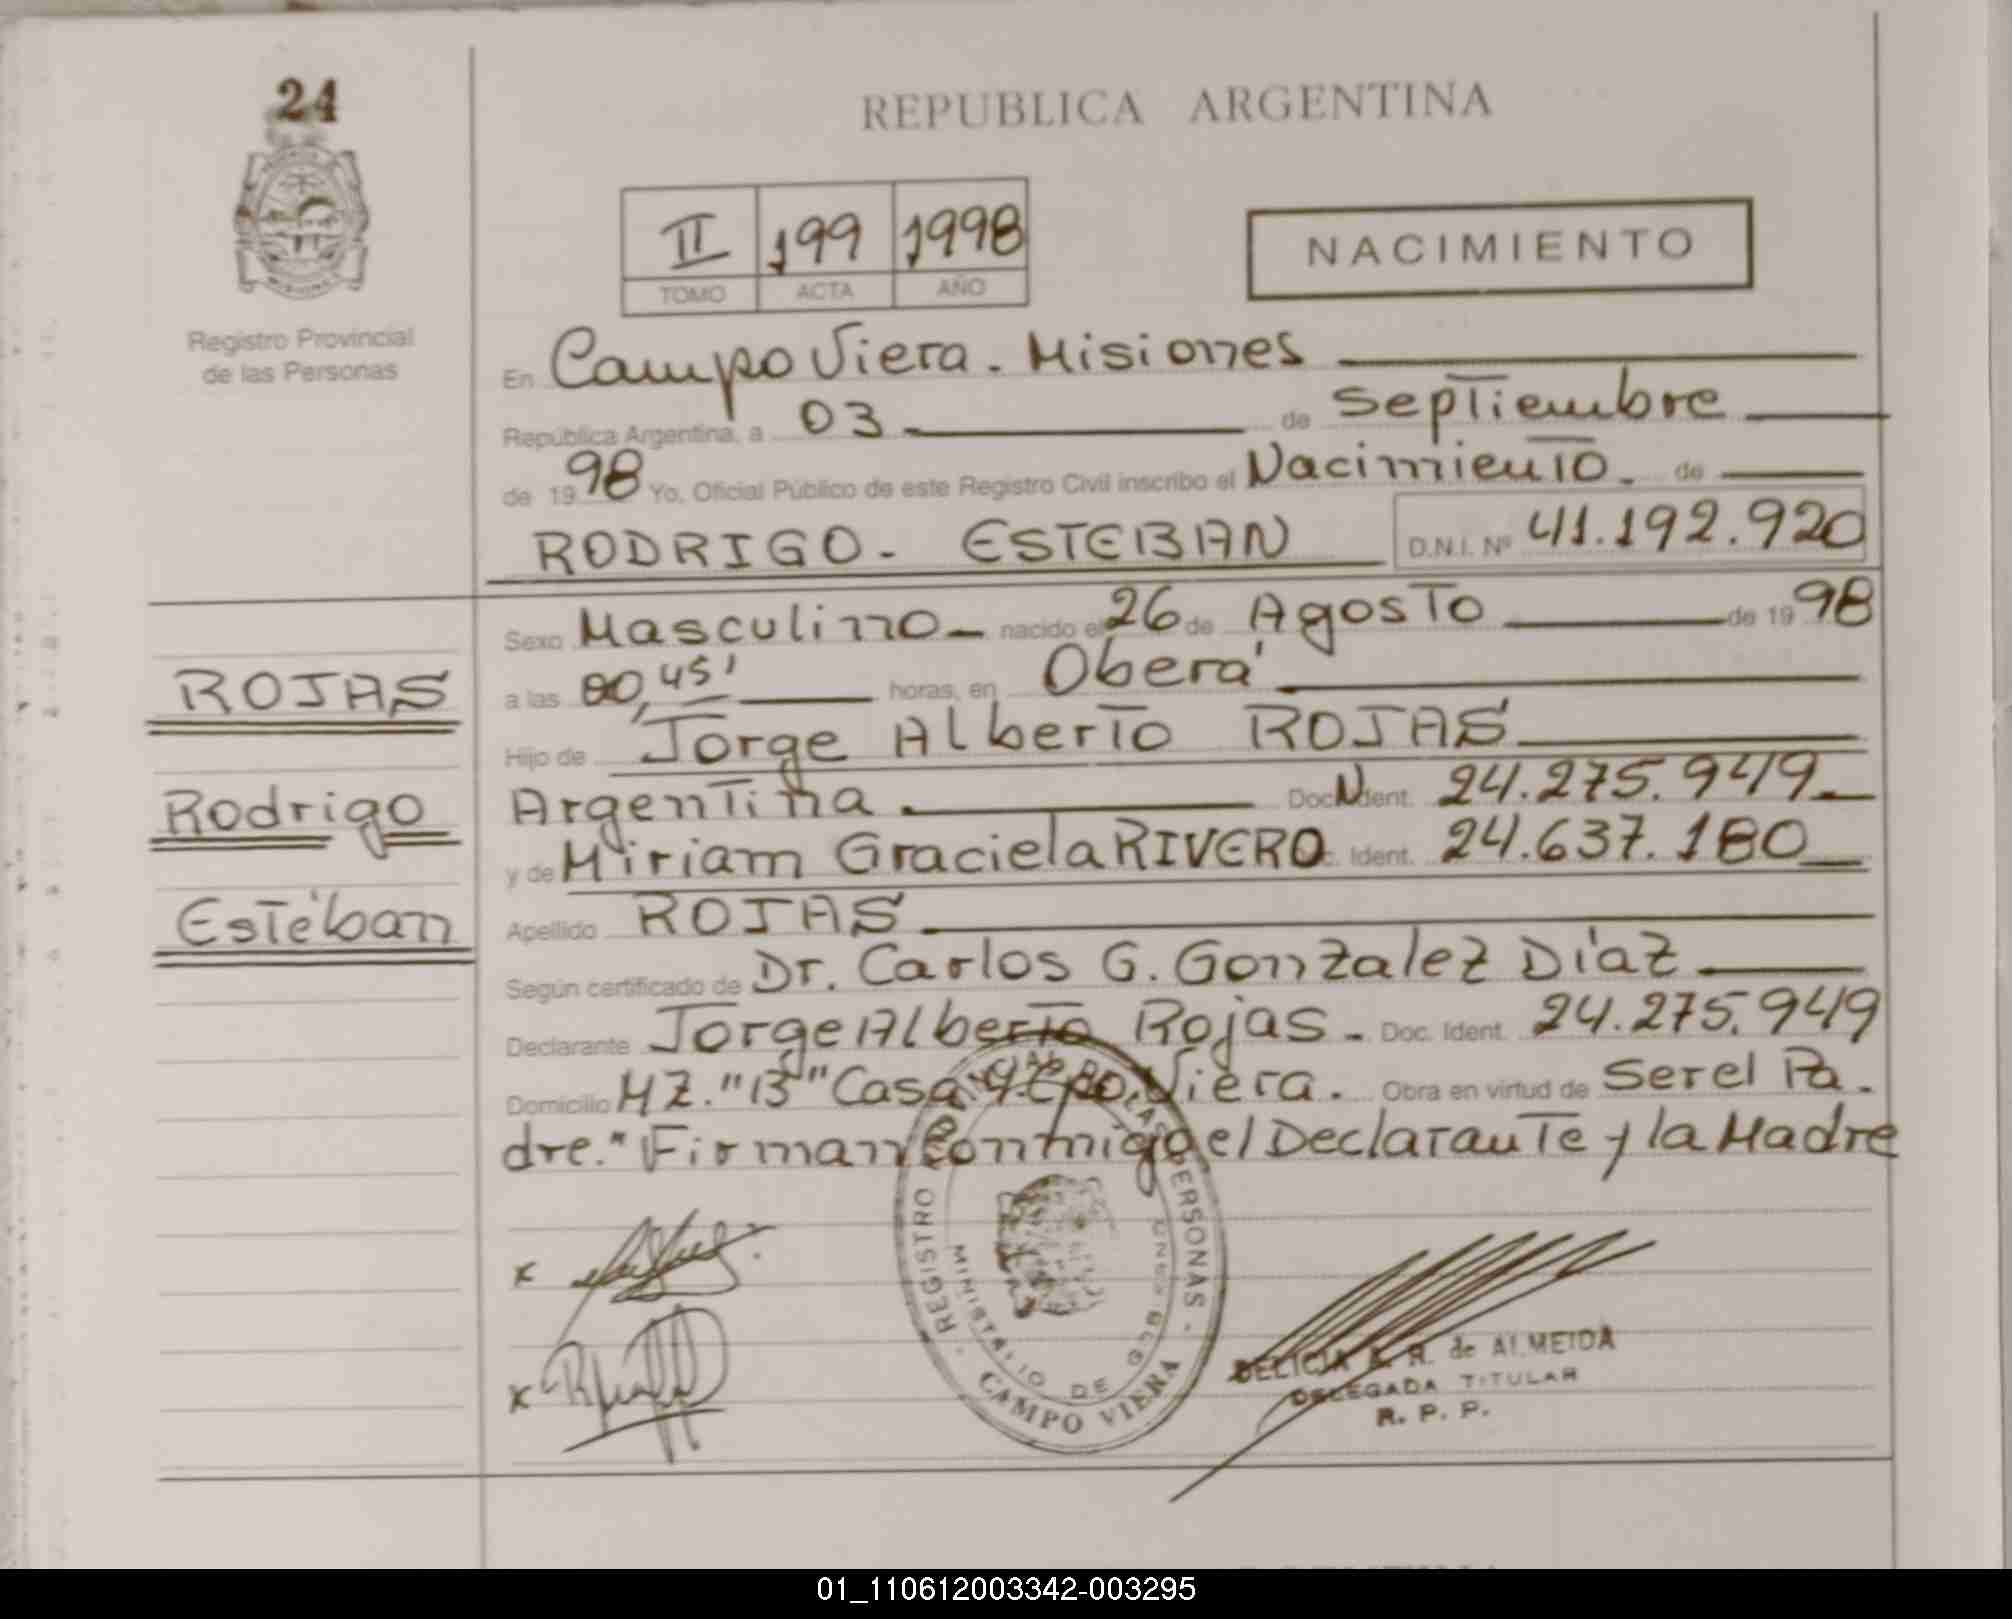 24
REPUBLICA ARGENTINA
II 199 1998
TOMO ACTA AÑO
NACIMIENTO
Registro Provincial
de las Personas
En Campo Viera. Misiones
República Argentina, a 03 de septiembre
de 1998 Yo, Oficial Público de este Registro Civil inscribo el Nacimiento. de
RODRIGO - ESTEBAN D.N.I. Nº 41.192.920
Sexo Masculino nacido el 26 de Agosto de 1998
a las 00,45' horas, en Oberá
ROJAS
Hijo de Jorge Alberto ROJAS
Argentina Doc. Ident. N 24.275.949
Rodrigo
y de Miriam Graciela RIVERO c. Ident. 24.637.180
Estéban
Apellido ROJAS
Según certificado de Dr. Carlos G. Gonzalez Díaz
Declarante Jorge Alberto Rojas. Doc. Ident. 24.275.949
Domicilio MZ. "B" Casa 9. Cpo. Viera. Obra en virtud de Ser el Pa-
dre." Firman Conmigo el Declarante y la Madre
x
x
REGISTRO PROVINCIAL DE LAS PERSONAS
MINISTERIO DE
CAMPO VIERA
DELICIA R. de ALMEIDA
DELEGADA TITULAR
R. P. P.
01_110612003342-003295